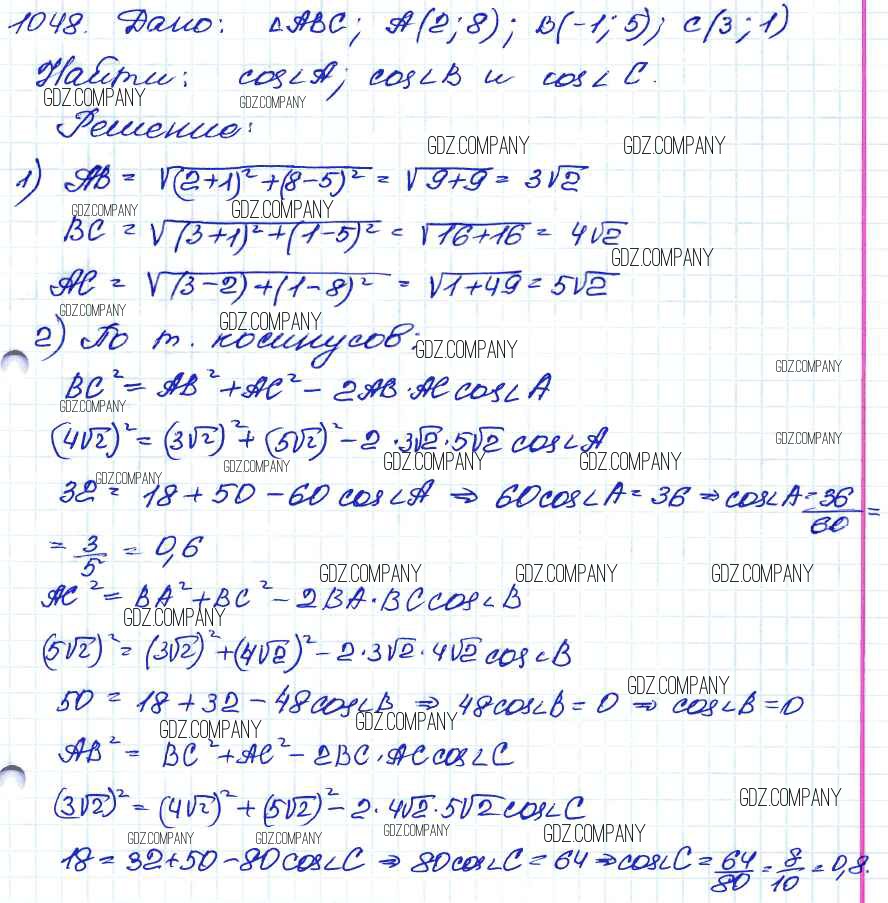 1048. Дано: △ABC; A(2;8); B(-1;5); C(3;1)
Найти: cos∠A; cos∠B и cos∠C.
GDZ.COMPANY GDZ.COMPANY
Решение:
GDZ.COMPANY GDZ.COMPANY
1) AB = √((2+1)²+(8-5)²) = √(9+9) = 3√2
GDZ.COMPANY GDZ.COMPANY
BC = √((3+1)²+(1-5)²) = √(16+16) = 4√2
GDZ.COMPANY
AC = √((3-2)+(1-8)²) = √(1+49) = 5√2
GDZ.COMPANY GDZ.COMPANY
2) По т. косинусов:
GDZ.COMPANY GDZ.COMPANY
BC² = AB²+AC² - 2AB·AC cos∠A
GDZ.COMPANY
(4√2)² = (3√2)²+(5√2)² - 2·3√2·5√2 cos∠A
GDZ.COMPANY
GDZ.COMPANY GDZ.COMPANY GDZ.COMPANY GDZ.COMPANY
32 = 18+50-60 cos∠A ⇒ 60cos∠A = 36 ⇒ cos∠A = 36/60 =
= 3/5 = 0,6
GDZ.COMPANY GDZ.COMPANY GDZ.COMPANY
AC² = BA²+BC² - 2BA·BC cos∠B
GDZ.COMPANY
(5√2)² = (3√2)²+(4√2)² - 2·3√2·4√2 cos∠B
GDZ.COMPANY
50 = 18+32-48cos∠B ⇒ 48cos∠B = 0 ⇒ cos∠B = 0
GDZ.COMPANY GDZ.COMPANY
AB² = BC²+AC² - 2BC·AC cos∠C
GDZ.COMPANY
(3√2)² = (4√2)²+(5√2)² - 2·4√2·5√2 cos∠C
GDZ.COMPANY GDZ.COMPANY GDZ.COMPANY GDZ.COMPANY
18 = 32+50-80cos∠C ⇒ 80cos∠C = 64 ⇒ cos∠C = 64/80 = 8/10 = 0,8.